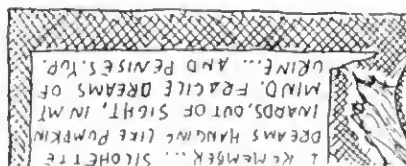 I REMEMBER... SILOHETTE
DREAMS HANGING LIKE PUMPKIN
INNARDS, OUT OF SIGHT, IN MY
MIND. FRAGILE DREAMS OF
URINE... AND PENISES. YUP.